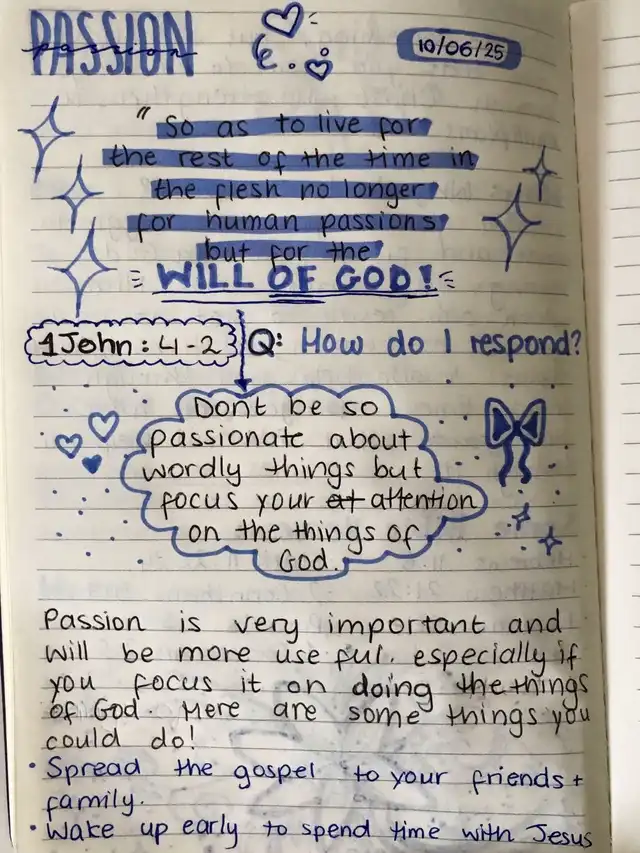 PASSION
passion
10/06/25
"so as to live for
the rest of the time in
the flesh no longer
for human passions
but for the
WILL OF GOD!
1John: 4-2
Q: How do I respond?
Dont be so
passionate about
wordly things but
focus your at attention
on the things of
God.
Passion is very important and
will be more use ful. especially if
you focus it on doing the things
of God. Here are some things you
could do!
• Spread the gospel to your friends +
family.
• Wake up early to spend time with Jesus